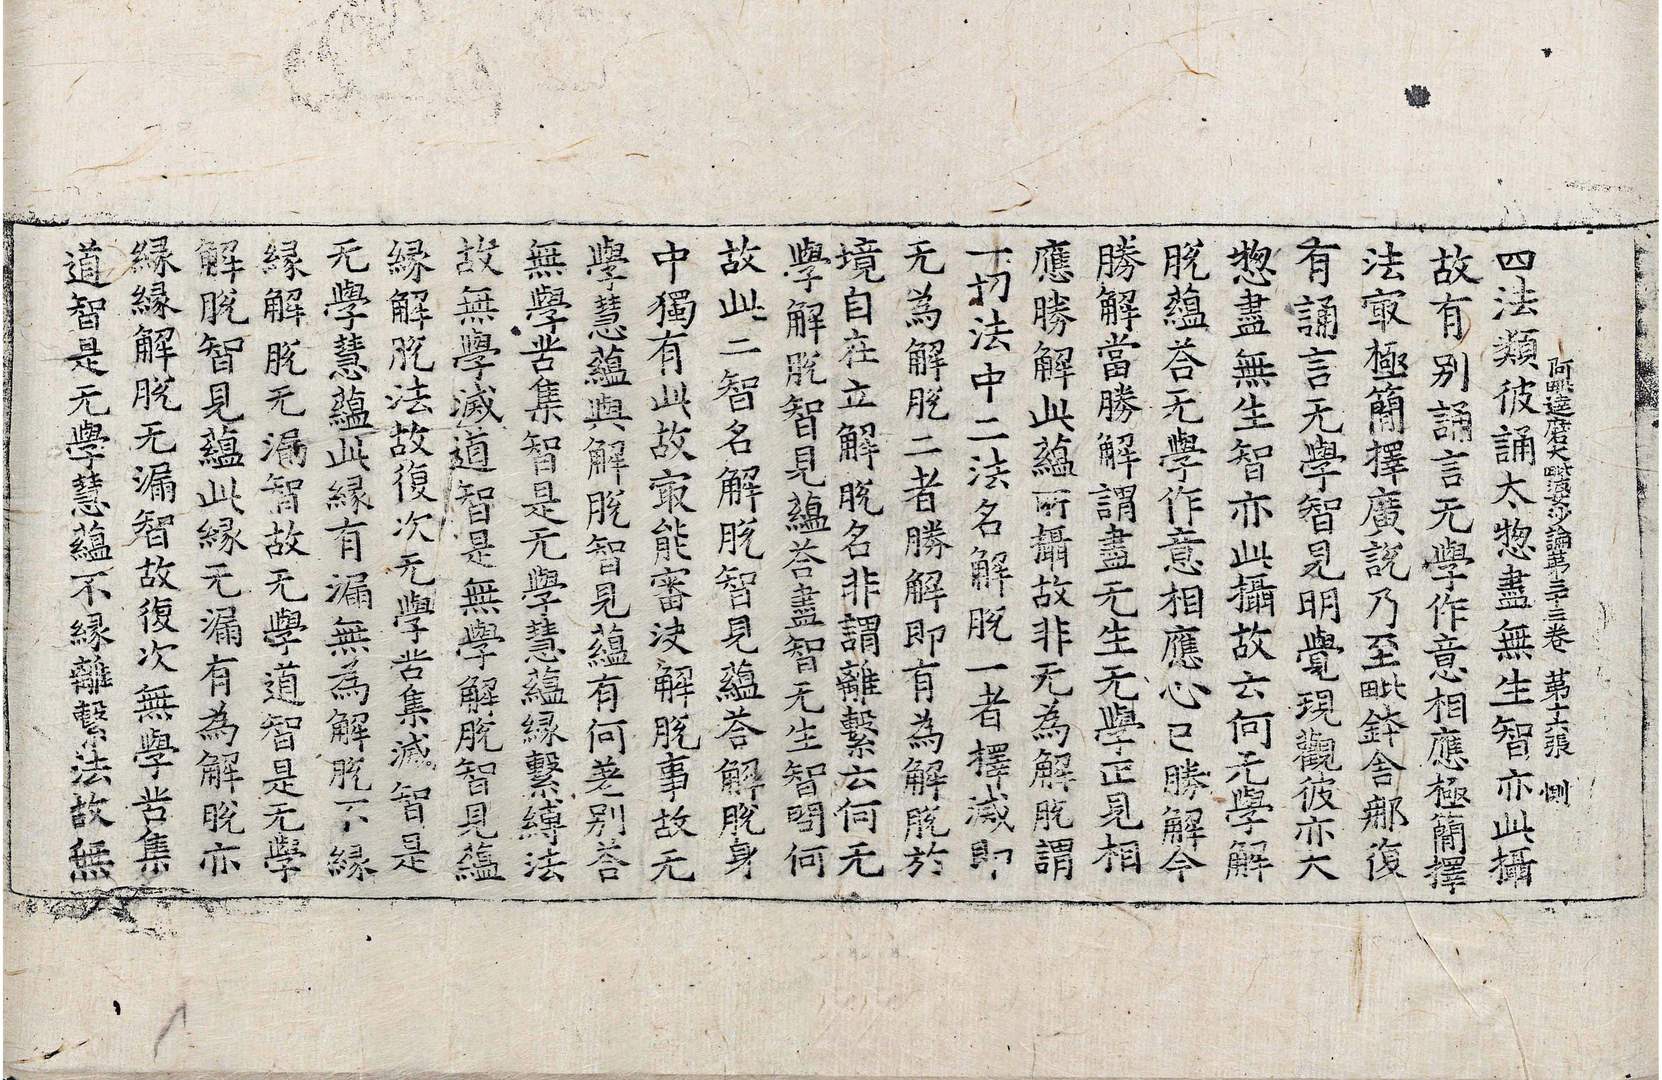 阿毗達磨大毗婆沙論第三十三卷 第十六張 惻
四法類彼誦太惣盡無生智亦此攝
故有別誦言无學作意相應極簡擇
法㝡極簡擇廣說乃至毗鉢舍那復
有誦言无學智見明覺現觀彼亦大
惣盡無生智亦此攝故云何无學解
脫蘊荅无學作意相應心已勝解今
勝解當勝解謂盡无生无學正見相
應勝解此蘊所攝故非无為解脫謂
一切法中二法名解脫一者擇滅即
无為解脫二者勝解即有為解脫於
境自在立解脫名非謂離繫云何无
學解脫智見蘊荅盡智无生智問何
故此二智名解脫智見蘊荅解脫身
中獨有此故㝡能審決解脫事故无
學慧蘊與解脫智見蘊有何差別荅
無學苦集智是无學慧蘊緣繫縛法
故無學滅道智是無學解脫智見蘊
緣解脫法故復次无學苦集滅智是
无學慧蘊此緣有漏無為解脫不緣
緣解脫无漏智故无學道智是无學
解脫智見蘊此緣无漏有為解脫亦
緣緣解脫无漏智故復次無學苦集
道智是无學慧蘊不緣離繫法故無